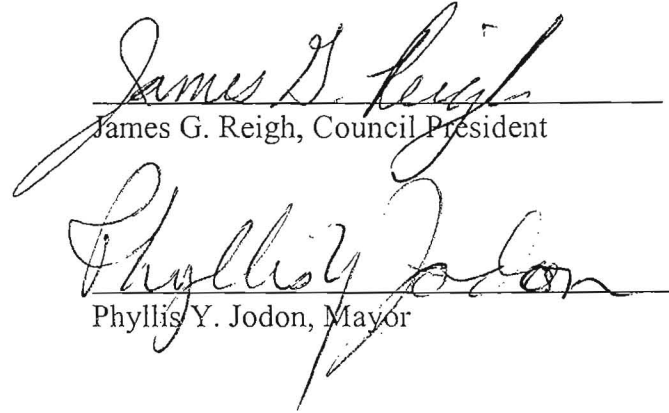 James G. Reigh
James G. Reigh, Council President
Phyllis Y Jodon
Phyllis Y. Jodon, Mayor